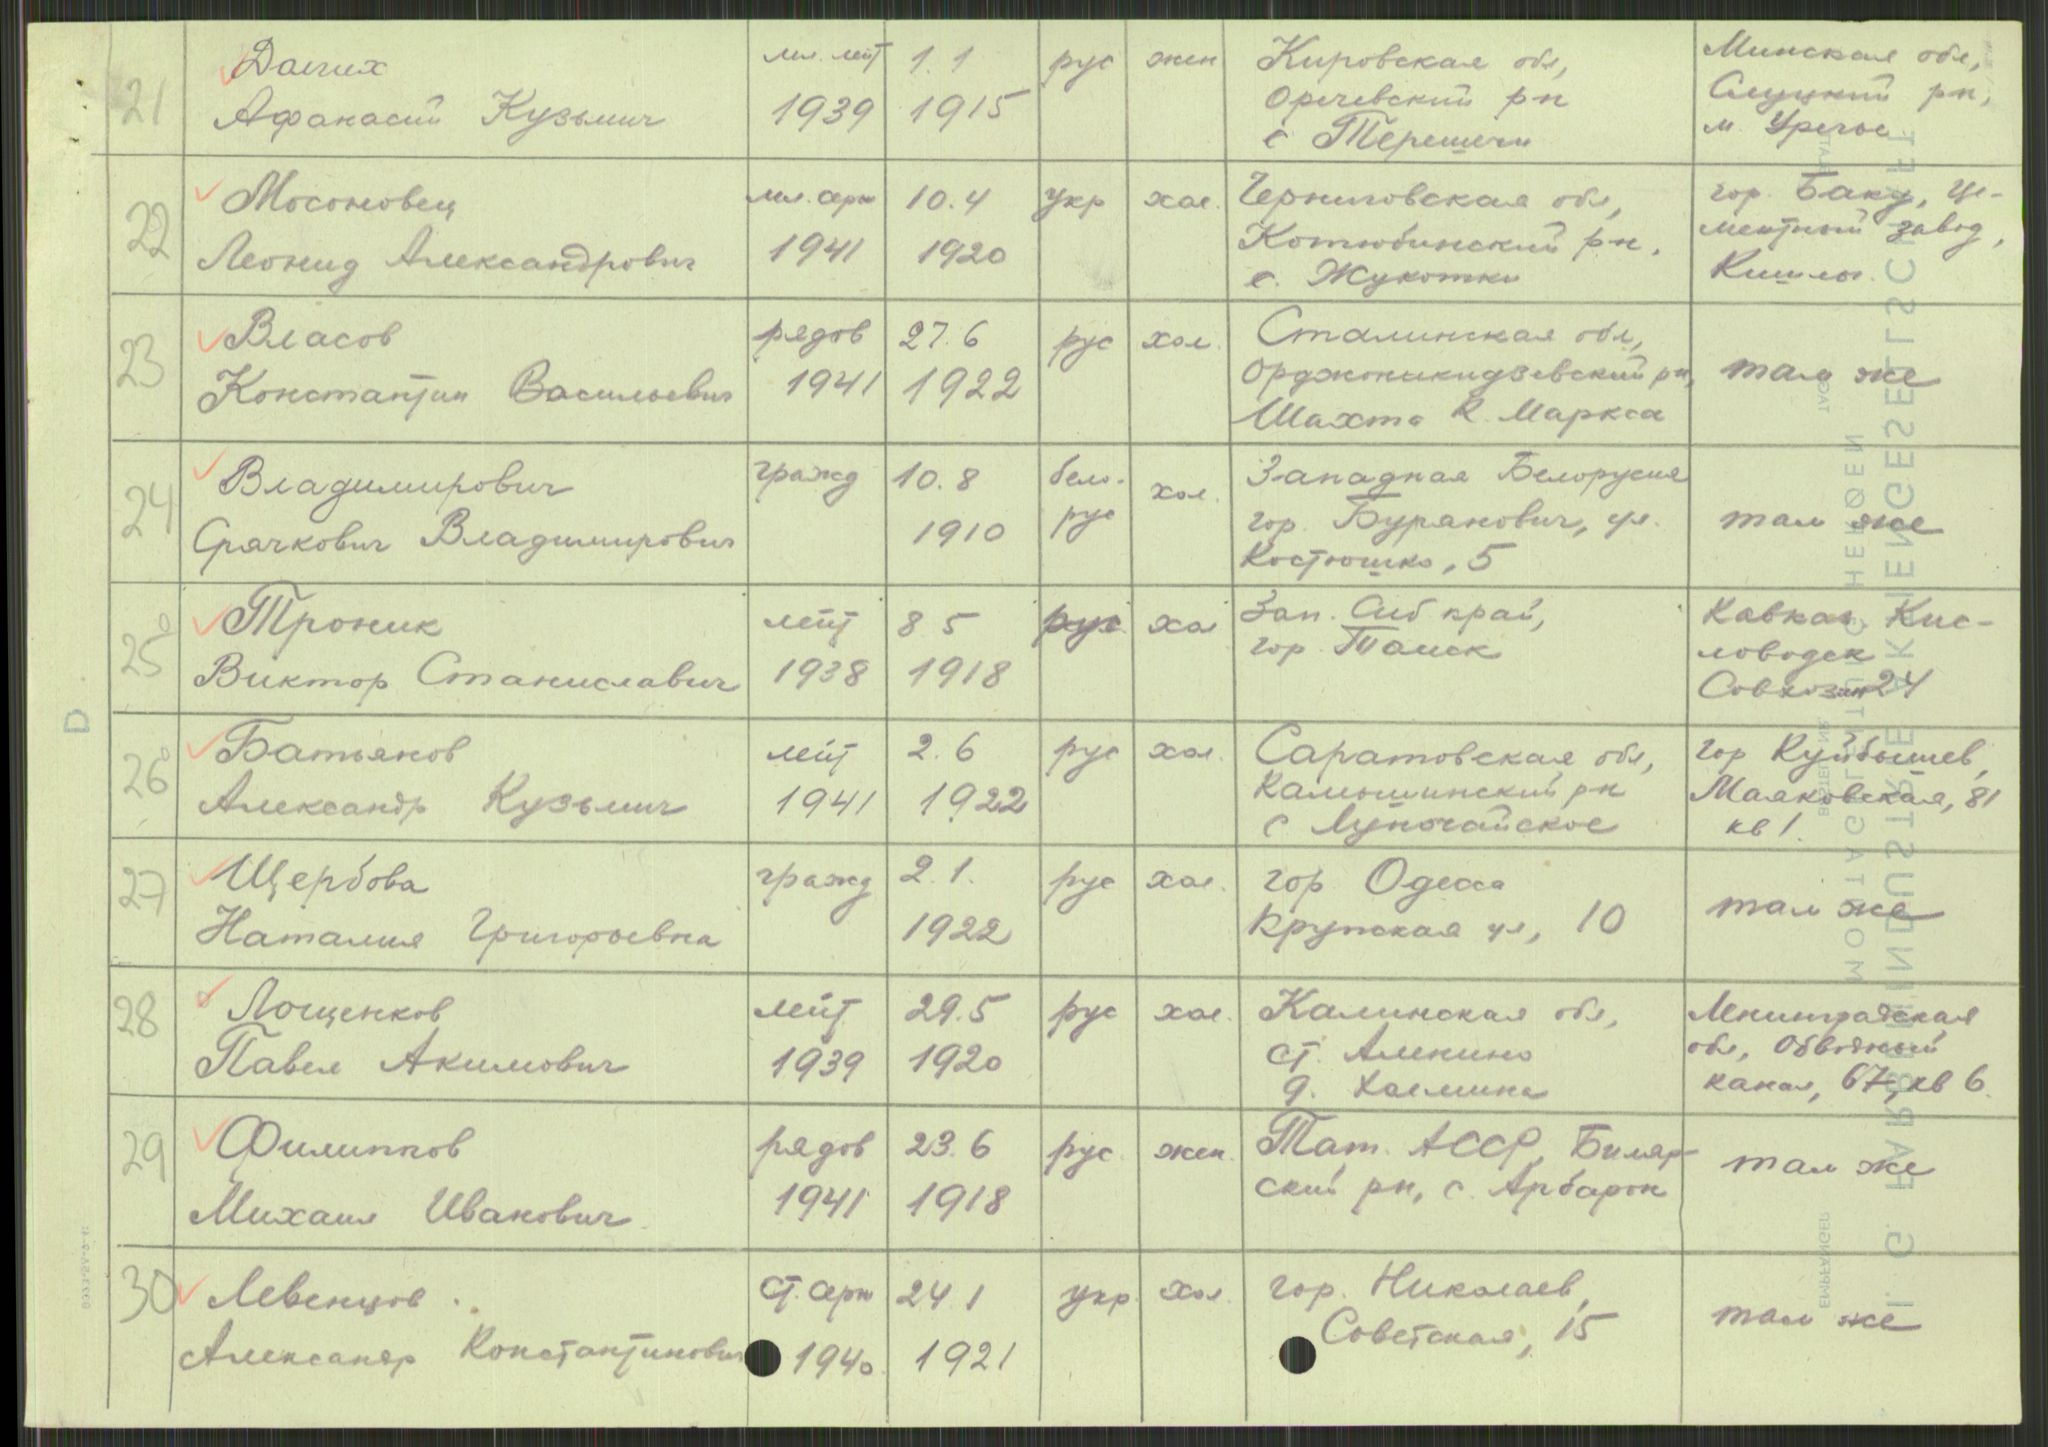 21 Долгих мл. лейт 1.1 рус жен Кировская обл, Минская обл,
Афанасий Кузьмич 1939 1915 Оричевский рн Слуцкий рн,
с Терешечи м. Уречье
22 Мосоновец мл. серж 10.4 укр хол. Черниговская обл, гор. Баку, Це-
Леонид Александрович 1941 1920 Коцюбинский рн, ментный завод,
с. Жукотки Кишлы.
23 Власов рядов 27.6 рус хол. Сталинская обл,
Константин Васильевич 1941 1922 Орджоникидзевский рн, там же
Шахта К. Маркса
24 Владимирович гражд 10.8 бело- хол. Западная Белорусия
Срячкович Владимирович 1910 рус гор. Буранович, ул. там же
Костюшко, 5
25 Троник лейт 8 5 рус хол Зап. Сиб край, Кавказ, Кис-
Виктор Станиславич 1938 1918 гор. Томск ловодск
Совхозн 24
26 Батьянов лейт 2.6 рус хол. Саратовская обл, гор Куйбышев,
Александр Кузьмич 1941 1922 Камышинский рн Маяковская, 81
с кв 1.
27 Щербова гражд 2.1. рус хол. гор. Одесса
Наталия Григорьевна 1922 Крупская ул, 10 там же
28 Лощенков лейт 29.5 рус хол. Калинская обл, Ленинградская
Павел Акимович 1939 1920 ст. Аленино обл, Обводный
д. канал, 67, кв 6.
29 Филиппов рядов 23.6 рус жен. Тат. АССР, Биляр-
Михаил Иванович. 1941 1918 ский рн, с. там же
30 Левенцов ст. серж 24 1 укр. хол. гор. Николаев,
Александр Константинович 1940. 1921 Советская, 15 там же
D
I. G. FARBENINDUSTRIE AKTIENGESELLSCHAFT
EMPFÄNGER